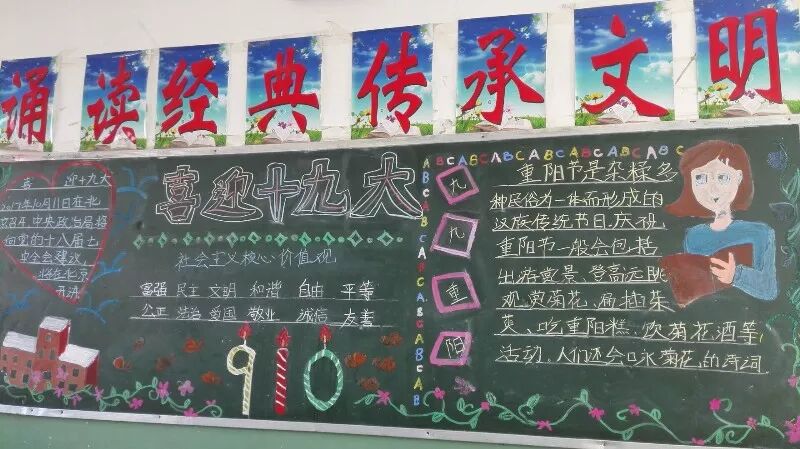 诵读经典传承文明
喜 迎十九大
2017年10月11日在北
京召开 中央政治局将
向党的十八届七
中全会建议
将在北京
召开
喜迎十九大
社会主义核心价值观
富强 民主 文明 和谐 自由 平等
公正 法治 爱国 敬业 诚信 友善
910
ABCABCABCABCABCABCABC
九
九
重
阳
重阳节是杂糅多
种民俗为一体而形成的
汉族传统节日.庆祝
重阳节一般会包括
出游赏景、登高远眺
观赏菊花、遍插茱
萸、吃重阳糕、饮菊花酒等
活动,人们还会口咏菊花的诗词